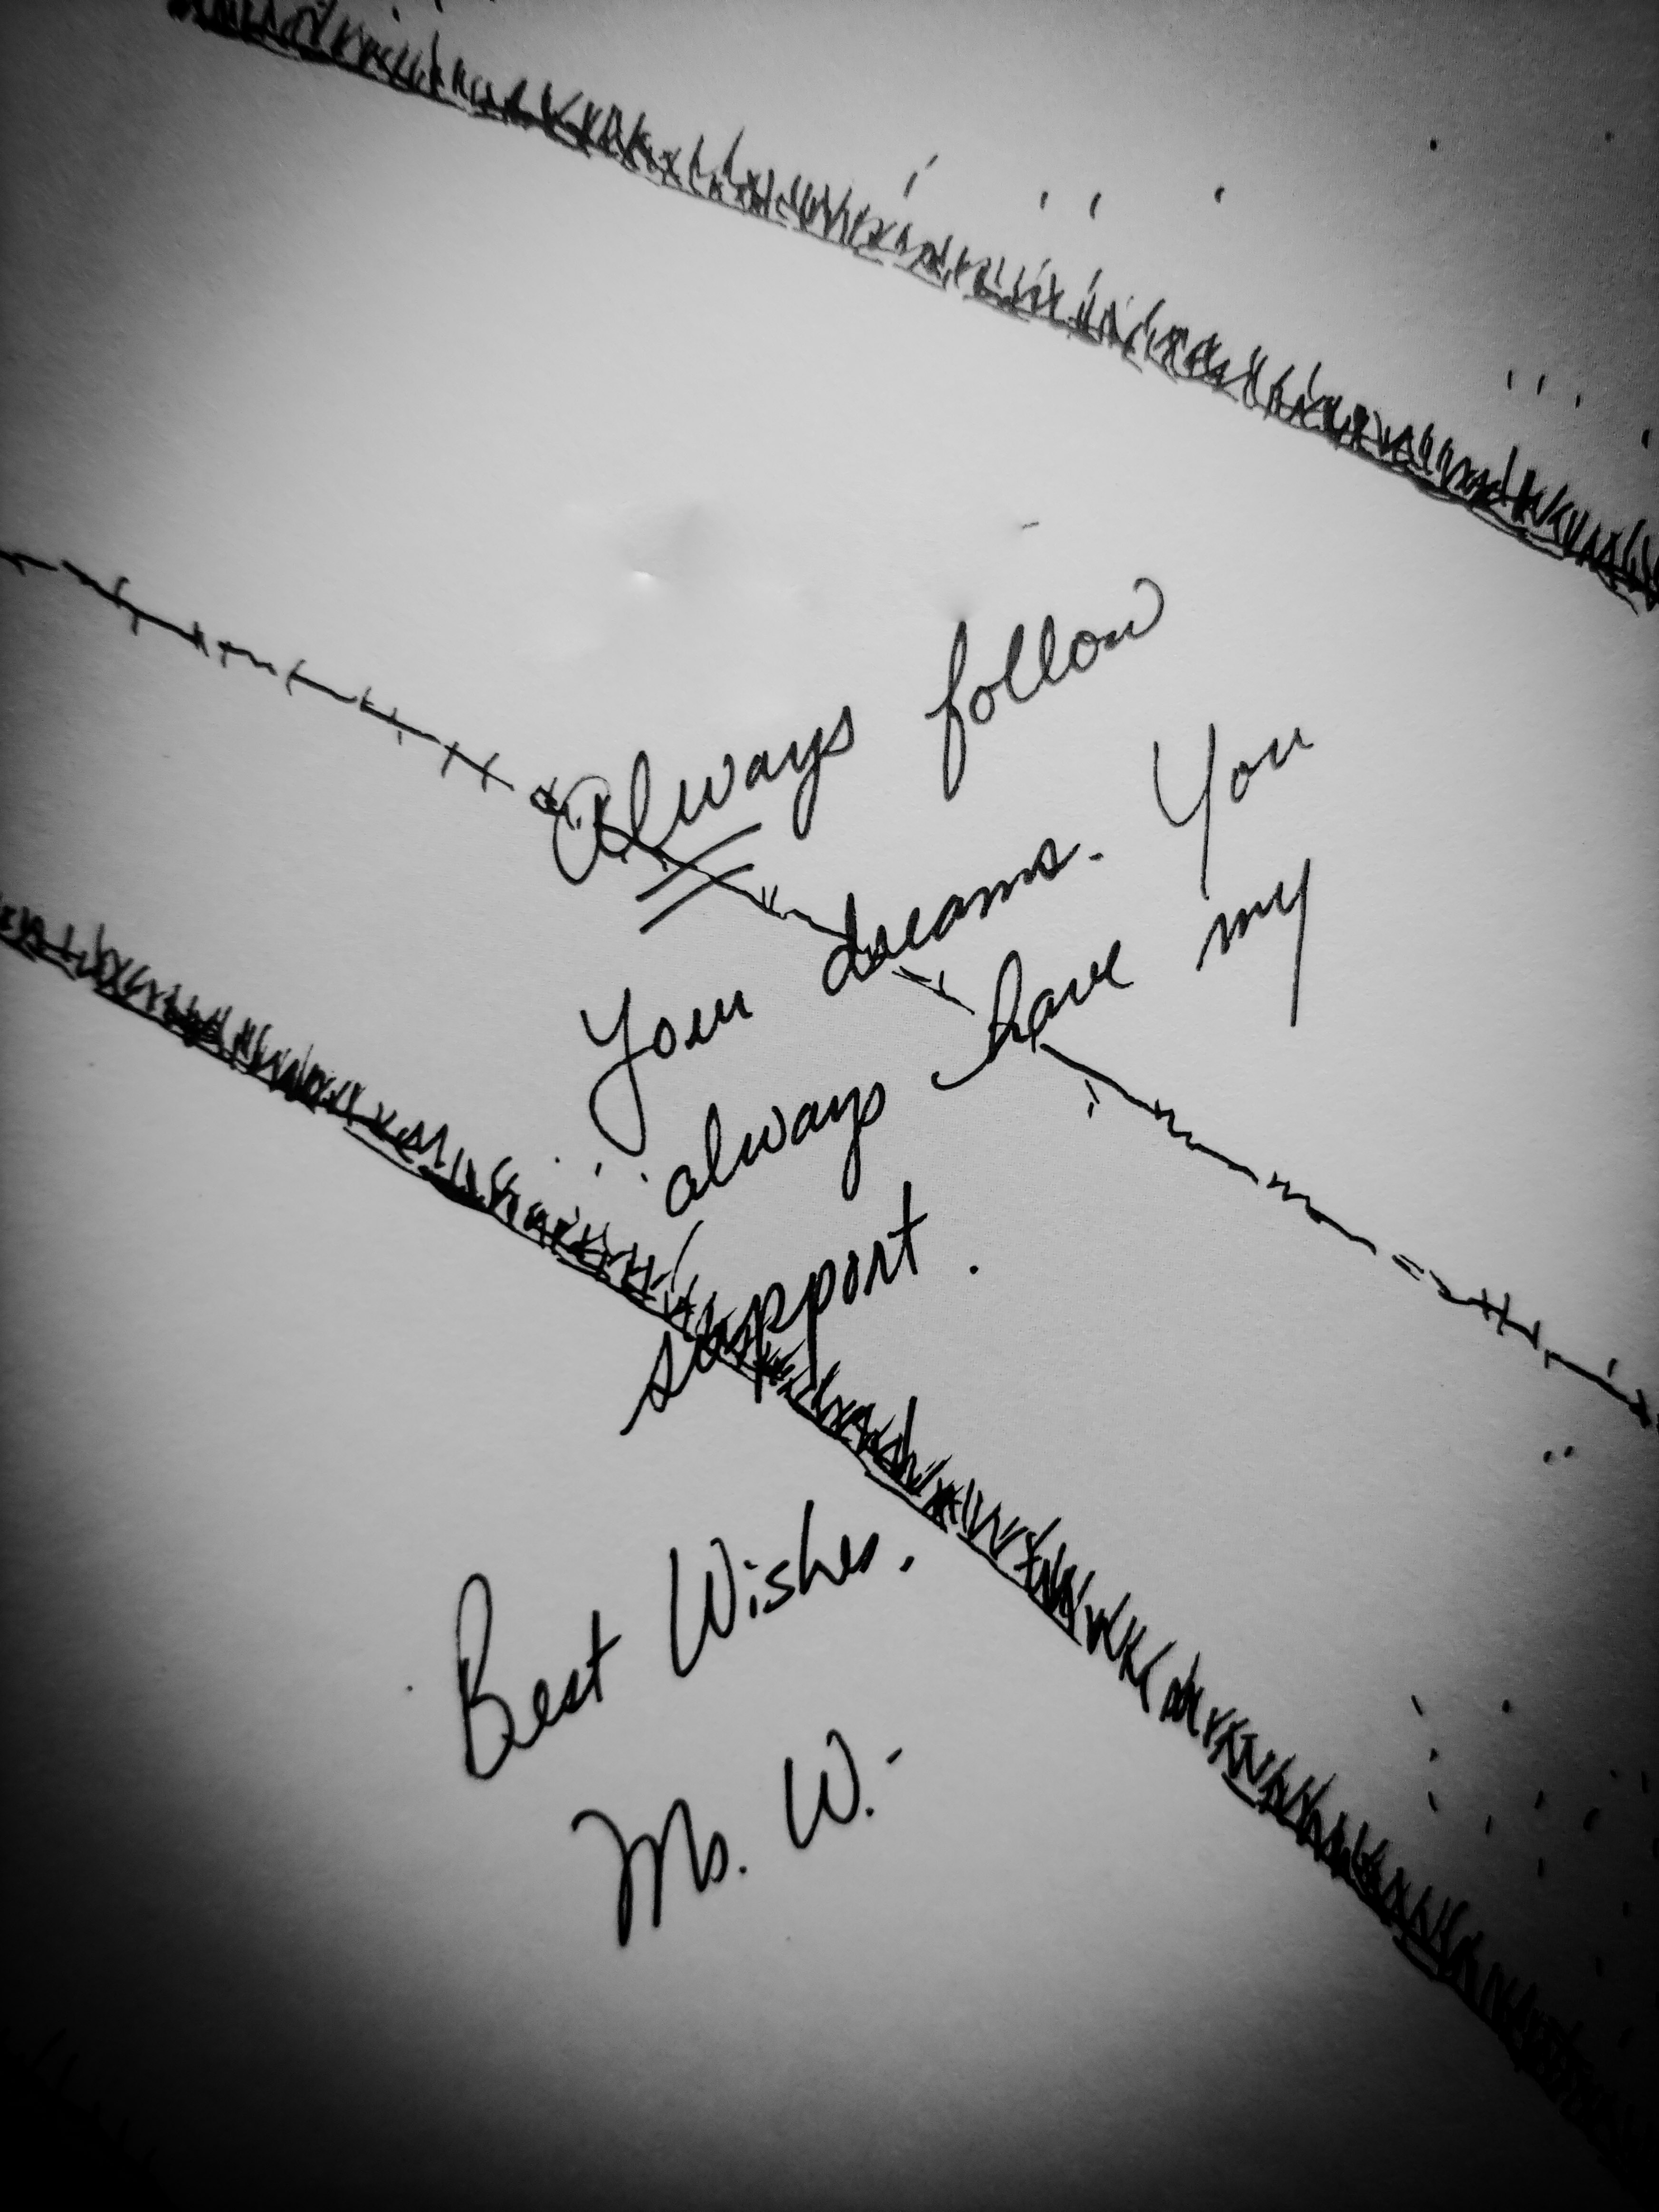 Always follow
your dreams. You
always have my
support.
Best Wishes.
Ms. W.-